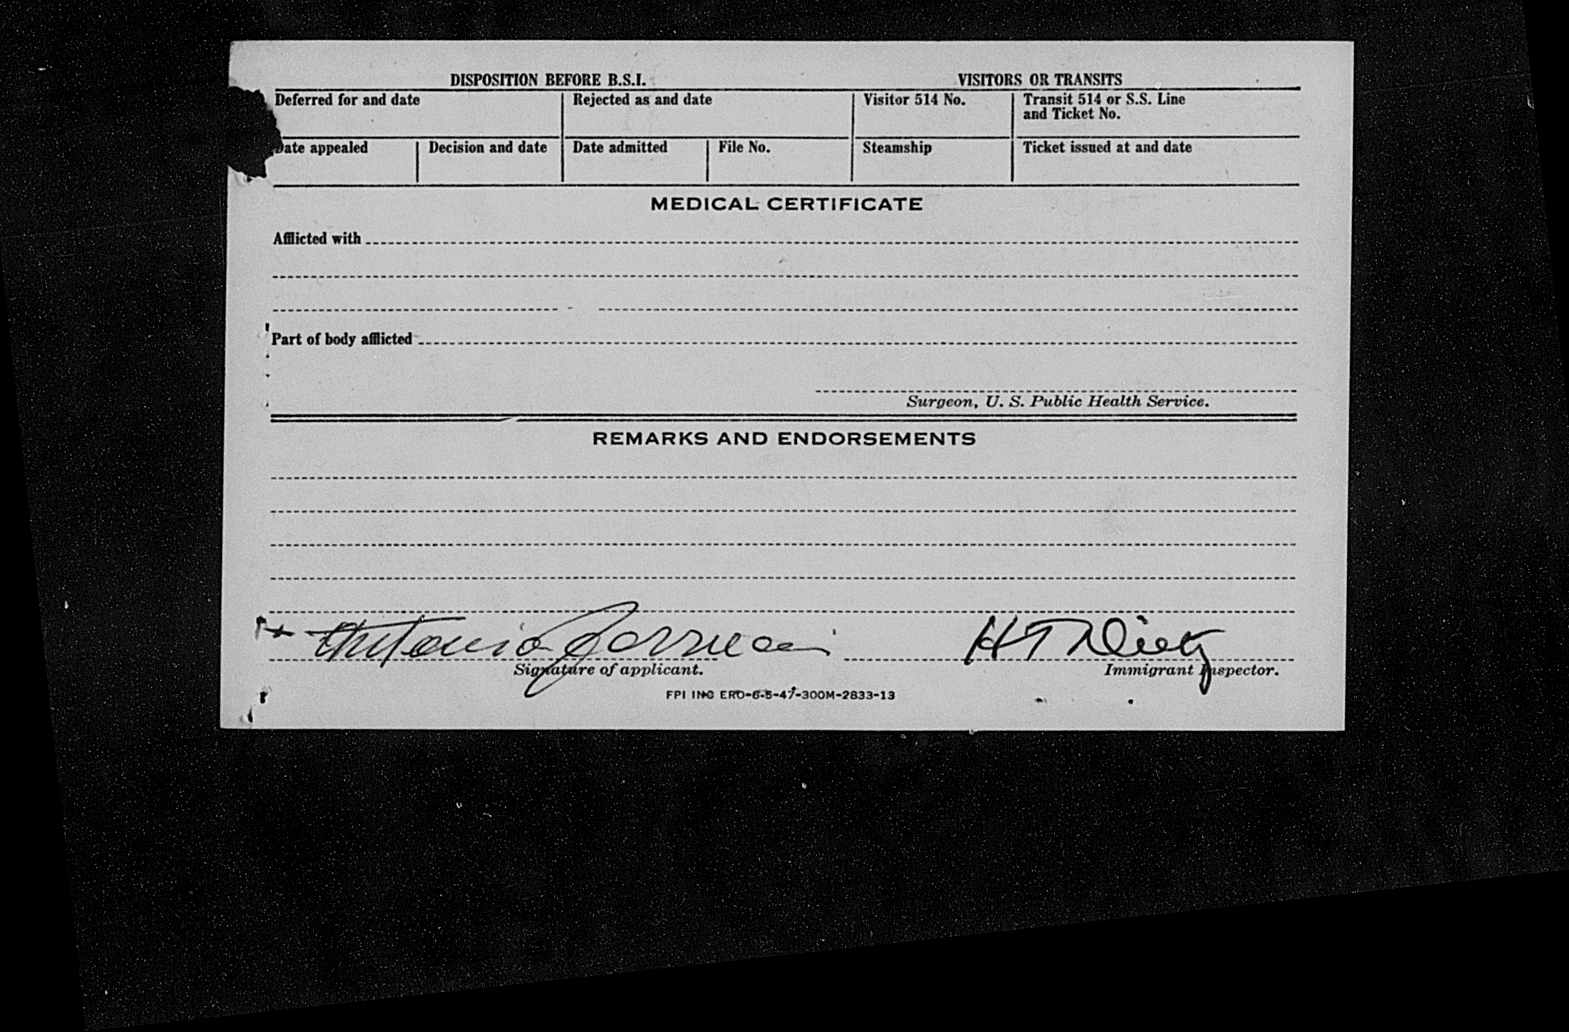 DISPOSITION BEFORE B.S.I. VISITORS OR TRANSITS
Deferred for and date Rejected as and date Visitor 514 No. Transit 514 or S.S. Line
and Ticket No.
Date appealed Decision and date Date admitted File No. Steamship Ticket issued at and date
MEDICAL CERTIFICATE
Afflicted with
Part of body afflicted
Surgeon, U. S. Public Health Service.
REMARKS AND ENDORSEMENTS
Antonio
Signature of applicant. Immigrant Inspector.
FPI INC ERO-6-5-47-300M-2833-13